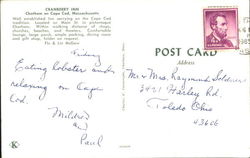 CRANBERRY INN
Chatham on Cape Cod, Massachusetts
Well established Inn carrying on the Cape Cod
tradition. Located on Main St. in picturesque
Chatham. Within walking distance of shops,
churches, beaches, and theaters. Comfortable
lounge, large porch, ample parking, dining room
and gift shop, folder on request.
POST CARD
Friday
Eating lobster and
relaxing on Cape
Cod.
Mildred
and
Paul
Mr. & Mrs. Raymond
2421 Farley Rd.
Toledo Ohio
43606
K